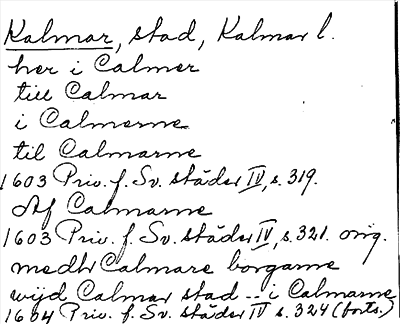 Kalmar, stad, Kalmar l.
her i Calmer
till Calmar
i Calmerne
til Calmarne
1603 Priv. f. Sv. städer IV, s. 319.
Af Calmarne
1603 Priv. f. Sv. städer IV, s. 321. orig.
medh Calmare borgarne
wijd Calmar stad -- i Calmarne
1604 Priv. f. Sv. städer IV s. 324 (forts.)